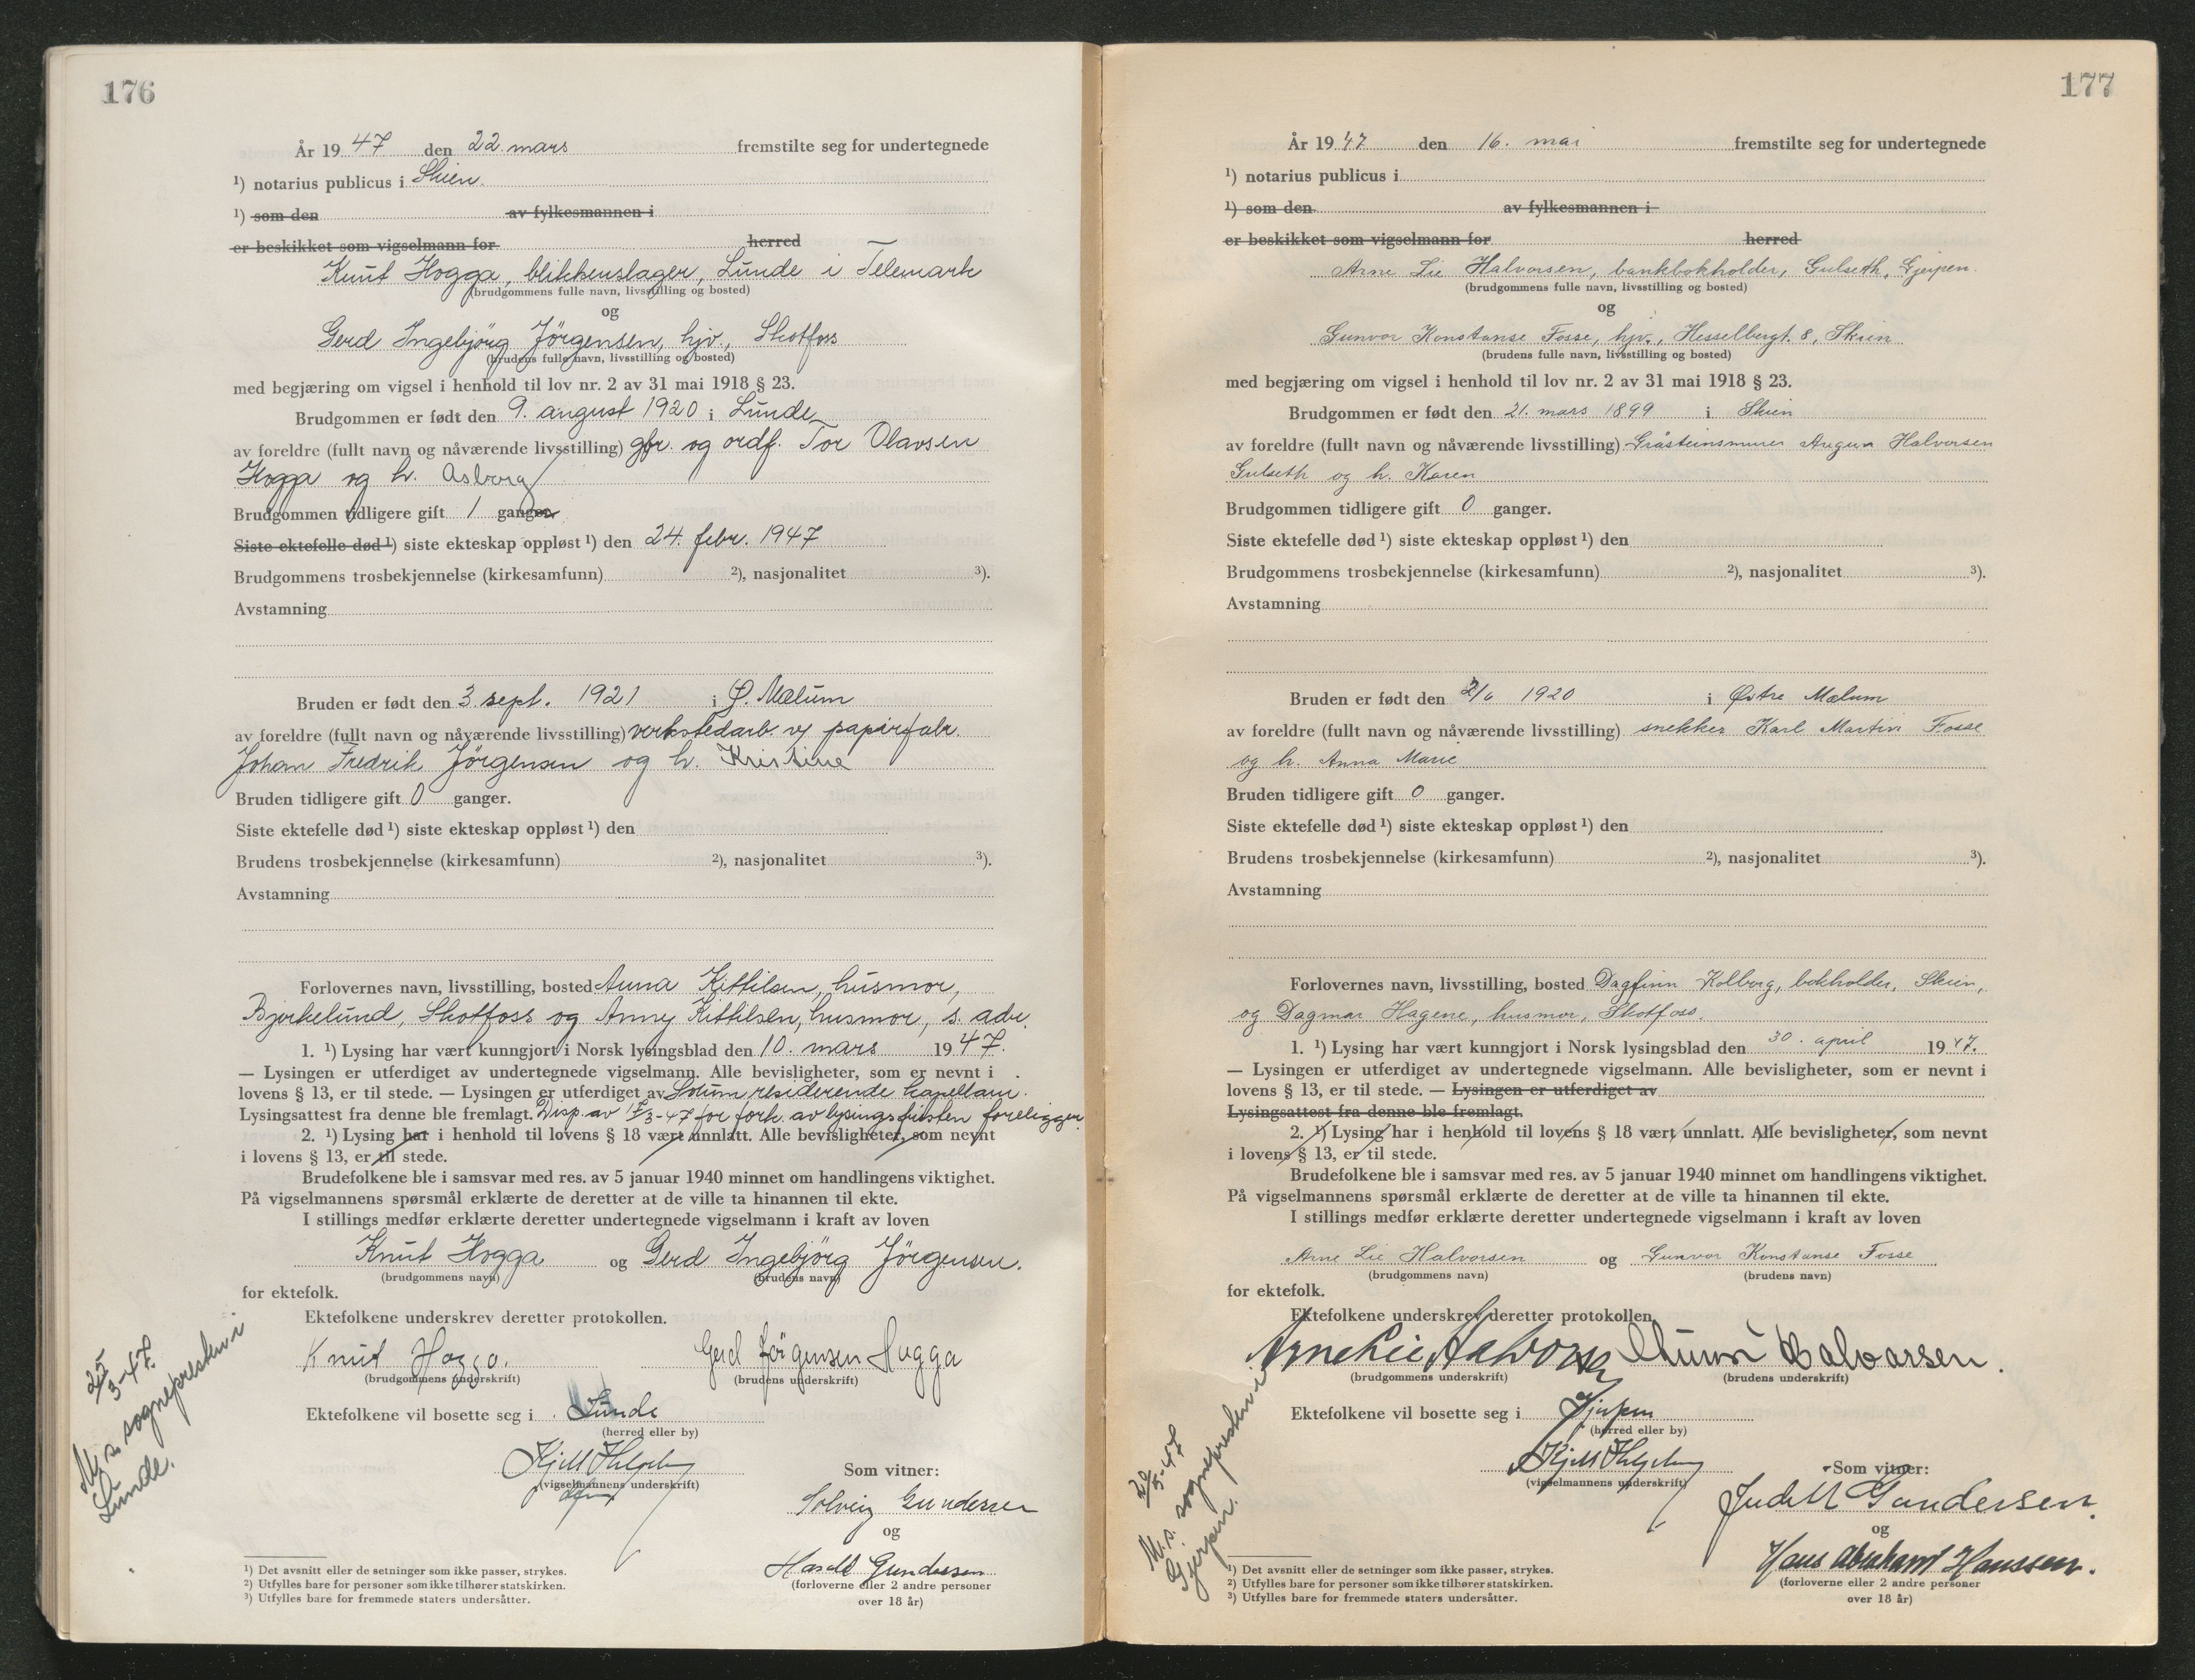 176
År 1947 den 22. mars fremstilte seg for undertegnede
¹) notarius publicus i Skien.
¹) som den av fylkesmannen i
er beskikket som vigselmann for herred
Knut Hogga, blikkenslager, Lunde i Telemark
(brudgommens fulle navn, livsstilling og bosted)
og
Gerd Ingebjörg Jörgensen, hjv., Skotfoss
(brudens fulle navn, livsstilling og bosted)
med begjæring om vigsel i henhold til lov nr. 2 av 31 mai 1918 § 23.
Brudgommen er født den 9. august 1920 i Lunde
av foreldre (fullt navn og nåværende livsstilling) gbr. og ordf. Tor Olavsen
Hogga og h. Asborg
Brudgommen tidligere gift 1 ganger
Siste ektefelle død ¹) siste ekteskap oppløst ¹) den 24. febr. 1947
Brudgommens trosbekjennelse (kirkesamfunn) ²), nasjonalitet ³).
Avstamning
Bruden er født den 3. sept. 1921 i Ø. Mælum
av foreldre (fullt navn og nåværende livsstilling) verkstedarb. v/ papirfabr.
Johan Fredrik Jörgensen og h. Kristine
Bruden tidligere gift 0 ganger.
Siste ektefelle død ¹) siste ekteskap oppløst ¹) den
Brudens trosbekjennelse (kirkesamfunn) ²), nasjonalitet ³).
Avstamning
Forlovernes navn, livsstilling, bosted Anna Kittilsen, husmor,
Bjørkelund, Skotfoss og Anny Kittilsen, husmor, s. adr.
1. ¹) Lysing har vært kunngjort i Norsk lysingsblad den 10. mars 1947.
— Lysingen er utferdiget av undertegnede vigselmann. Alle bevisligheter, som er nevnt i
lovens § 13, er til stede. — Lysingen er utferdiget av Solum residerende kapellani.
Lysingsattest fra denne ble fremlagt. Disp. av 17/3-47 for fork. av lysingsfristen foreligger.
2. ¹) Lysing har i henhold til lovens § 18 vært unnlatt. Alle bevisligheter, som nevnt
i lovens § 13, er til stede.
Brudefolkene ble i samsvar med res. av 5 januar 1940 minnet om handlingens viktighet.
På vigselmannens spørsmål erklærte de deretter at de ville ta hinannen til ekte.
I stillings medfør erklærte deretter undertegnede vigselmann i kraft av loven
Knut Hogga og Gerd Ingebjörg Jörgensen.
(brudgommens navn) (brudens navn)
for ektefolk.
Ektefolkene underskrev deretter protokollen.
Knut Hogga. Gerd Jörgensen Hogga
(brudgommens underskrift) (brudens underskrift)
Ektefolkene vil bosette seg i Lunde
(herred eller by)
(vigselmannens underskrift)
Som vitner:
Solveig Gundersen
og
Harald Gundersen
(forloverne eller 2 andre personer
over 18 år)
25/3-47.
M. s. sognepresten i
Lunde.
¹) Det avsnitt eller de setninger som ikke passer, strykes.
²) Utfylles bare for personer som ikke tilhører statskirken.
³) Utfylles bare for fremmede staters undersåtter.
177
År 1947 den 16. mai fremstilte seg for undertegnede
¹) notarius publicus i
¹) som den av fylkesmannen i
er beskikket som vigselmann for herred
Arne Lie Halvorsen, bankbokholder, Gulseth, Gjerpen.
(brudgommens fulle navn, livsstilling og bosted)
og
Gunvor Konstanse Fosse, hjv., Hesselbergt. 8, Skien
(brudens fulle navn, livsstilling og bosted)
med begjæring om vigsel i henhold til lov nr. 2 av 31 mai 1918 § 23.
Brudgommen er født den 21. mars 1899 i Skien
av foreldre (fullt navn og nåværende livsstilling) Gråsteinsmurer August Halvorsen
Gulseth og h. Karen
Brudgommen tidligere gift 0 ganger.
Siste ektefelle død ¹) siste ekteskap oppløst ¹) den
Brudgommens trosbekjennelse (kirkesamfunn) ²), nasjonalitet ³).
Avstamning
Bruden er født den 2/6 1920 i Østre Mælum
av foreldre (fullt navn og nåværende livsstilling) snekker Karl Martin Fosse
og h. Anna Marie
Bruden tidligere gift 0 ganger.
Siste ektefelle død ¹) siste ekteskap oppløst ¹) den
Brudens trosbekjennelse (kirkesamfunn) ²), nasjonalitet ³).
Avstamning
Forlovernes navn, livsstilling, bosted Dagfinn Kolberg, bokholder, Skien,
og Dagmar Hagene, husmor, Skotfoss.
1. ¹) Lysing har vært kunngjort i Norsk lysingsblad den 30. april 1947.
— Lysingen er utferdiget av undertegnede vigselmann. Alle bevisligheter, som er nevnt i
lovens § 13, er til stede. — Lysingen er utferdiget av
Lysingsattest fra denne ble fremlagt.
2. ¹) Lysing har i henhold til lovens § 18 vært unnlatt. Alle bevisligheter, som nevnt
i lovens § 13, er til stede.
Brudefolkene ble i samsvar med res. av 5 januar 1940 minnet om handlingens viktighet.
På vigselmannens spørsmål erklærte de deretter at de ville ta hinannen til ekte.
I stillings medfør erklærte deretter undertegnede vigselmann i kraft av loven
Arne Lie Halvorsen og Gunvor Konstanse Fosse
(brudgommens navn) (brudens navn)
for ektefolk.
Ektefolkene underskrev deretter protokollen.
Arne Lie Halvorsen Halvorsen.
(brudgommens underskrift) (brudens underskrift)
Ektefolkene vil bosette seg i Gjerpen
(herred eller by)
(vigselmannens underskrift)
Som vitner:
Judith Gundersen.
og
Hans Abraham Hanssen.
(forloverne eller 2 andre personer
over 18 år)
M. s. sognepresten i
Gjerpen.
¹) Det avsnitt eller de setninger som ikke passer, strykes.
²) Utfylles bare for personer som ikke tilhører statskirken.
³) Utfylles bare for fremmede staters undersåtter.